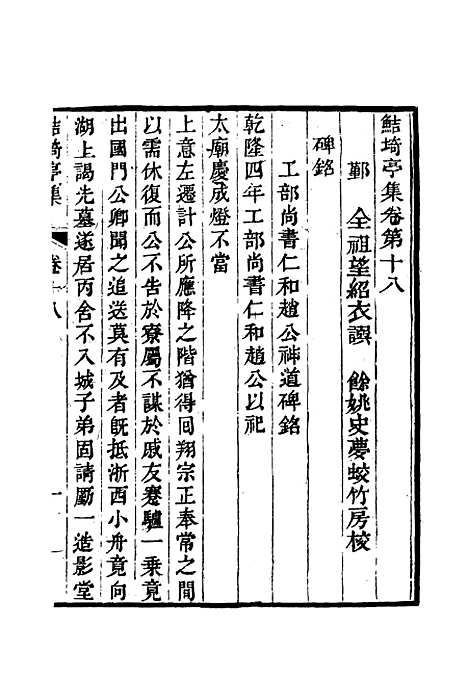 鮚埼亭集卷第十八
鄞　全祖望紹衣譔　餘姚史夢蛟竹房校
碑銘
工部尚書仁和趙公神道碑銘
乾隆四年工部尚書仁和趙公以祀
太廟慶成燈不當
上意左遷計公所應降之階猶得回翔宗正奉常之間
以需休復而公不告於寮屬不謀於戚友蹇驢一乗竟
出國門公卿聞之追送莫有及者旣抵浙西小舟竟向
湖上謁先墓遂居丙舍不入城子弟固請勵一造影堂
鮚埼亭集　卷十八　一